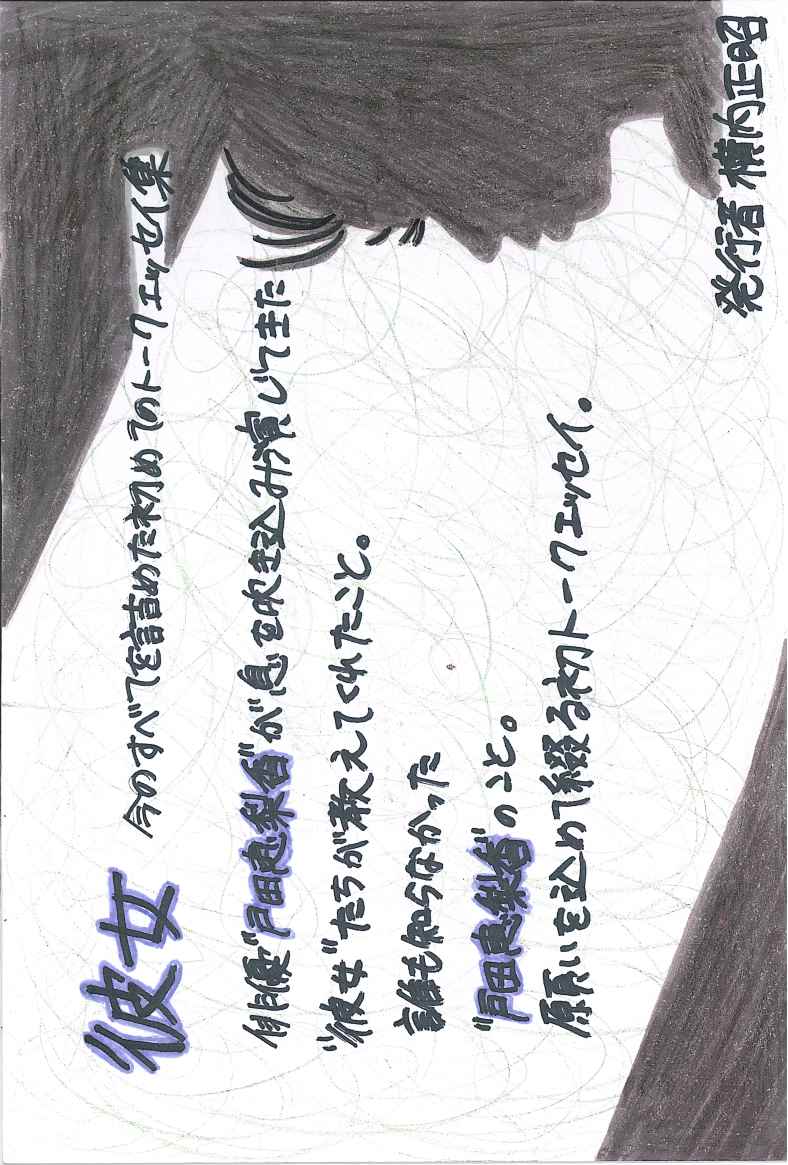 "彼女" 今のすべてを詰めた初めてのトークエッセイ集
俳優"戸田恵梨香"が息を吹き込み演じてきた
"彼女"たちが教えてくれたこと。
誰も知らなかった
"戸田恵梨香"のこと。
願いを込めて綴る初トークエッセイ。
発行者 横内正昭